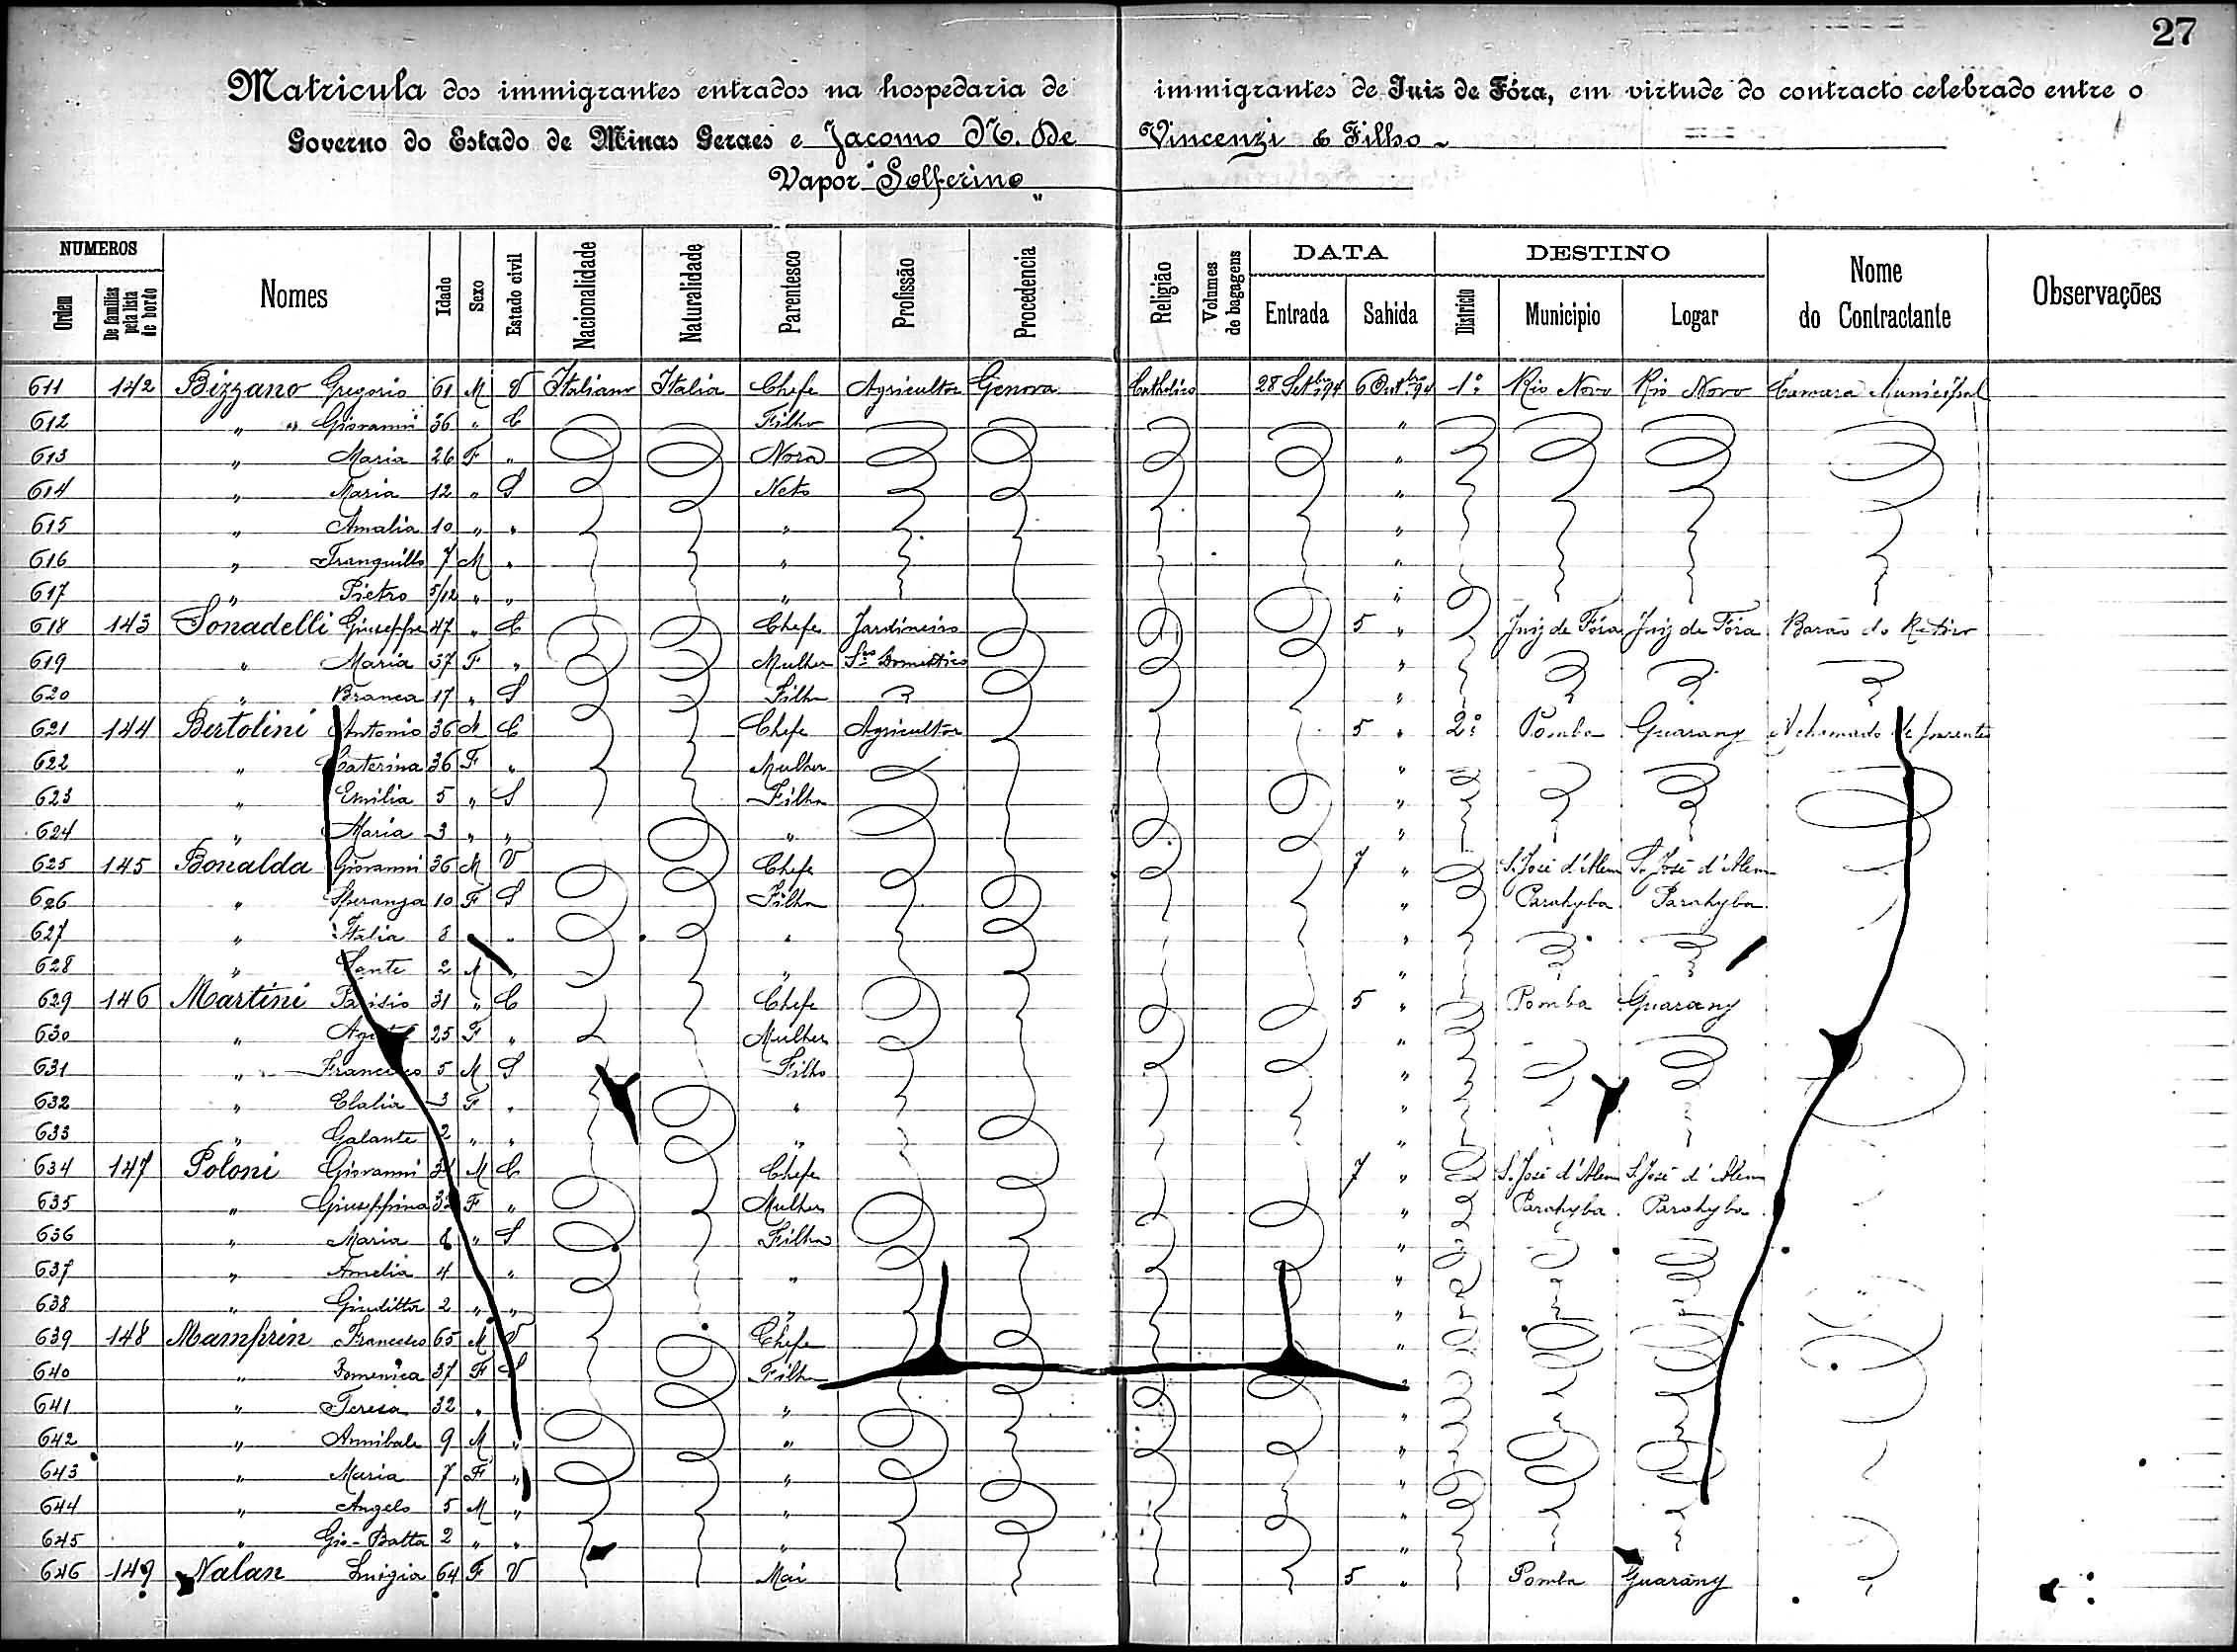 27
Matricula dos immigrantes entrados na hospedaria de immigrantes de Juiz de Fóra, em virtude do contracto celebrado entre o
Governo do Estado de Minas Geraes e Jacomo N. De Vincenzi & Filho
Vapor "Solferino"
NUMEROS Nomes Idade Sexo Estado civil Nacionalidade Naturalidade Parentesco Profissão Procedencia Religião Volumes de bagagens DATA DESTINO Nome do Contractante Observações
Ordem De familias pela lista de bordo Entrada Sahida Districto Municipio Logar
611 142 Bizzano Gregorio 61 M V Italiano Italia Chefe Agricultor Genova Catholico 28 Setbro 94 6 Outbro 94 1º Rio Novo Rio Novo Camara Municipal
612 " " Giovanni 36 " C Filho "
613 " Maria 26 F " Nora "
614 " Maria 12 " S Neto "
615 " Amalia 10 " " " "
616 " Tranquillo 7 M " " "
617 " Pietro 5/12 " " " "
618 143 Sonadelli Giuseppe 47 " C Chefe Jardineiro 5 " Juiz de Fóra Juiz de Fóra Barão do Retiro
619 " Maria 37 F " Mulher Sço Domestico "
620 " Branca 17 " S Filha "
621 144 Bertolini Antonio 36 M C Chefe Agricultor 5 " 2º Pomba Guarany A chamado de parente
622 " Caterina 36 F " Mulher "
623 " Emilia 5 " S Filha "
624 " Maria 3 " " " "
625 145 Bonalda Giovanni 36 M V Chefe 7 " S. José d'Alem S. José d'Alem
626 " Speranza 10 F S Filha " Parahyba Parahyba
627 " Italia 8 " " "
628 " Sante 2 M " " "
629 146 Martini Parisio 31 " C Chefe 5 " Pomba Guarany
630 " 25 F " Mulher "
631 " Francesco 5 M S Filho "
632 " Clalia 3 F " " "
633 " Galante 2 " " " "
634 147 Poloni Giovanni M C Chefe 7 " S. José d'Alem S. José d'Alem
635 " Giuseppina F " Mulher " Parahyba Parahyba
636 " Maria " S Filha "
637 " Amelia 4 " " "
638 " Giuditta 2 " " " "
639 148 Mamprin Francesco 65 M V Chefe "
640 " Domenica 37 F S Filha "
641 " Teresa 32 " " "
642 " Annibale 9 M " " "
643 " Maria 7 F " " "
644 " Angelo 5 M " " "
645 " Gio-Batta 2 " " " "
646 149 Nalan Luigia 64 F V Mai 5 " Pomba Guarany